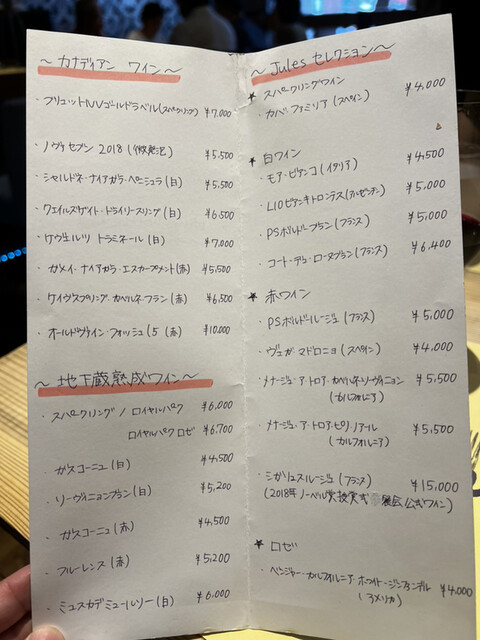 ～カナディアン ワイン～
・ブリュットNVゴールドラベル(スパークリング) ¥7,000
・ノヴァセブン 2018 (微発泡) ¥5,500
・シャルドネ・ナイアガラ・ペニシュラ(白) ¥5,500
・ウェイルズゲイト・ドライリースリング(白) ¥6,500
・ゲヴェルツ トラミネール(白) ¥7,000
・ガメイ・ナイアガラ・エスカープメント(赤) ¥5,500
・ケイヴスプリング・カベルネ・フラン(赤) ¥6,500
・オールドヴァイン・フォッシュ15 (赤) ¥10,000
～地下蔵熟成ワイン～
・スパークリング / ロイヤルパク ¥6,000
ロイヤルパク ロゼ ¥6,700
・ガスコーニュ(白) ¥4,500
・ソーヴィニョンブラン(白) ¥5,200
・ガスコーニュ(赤) ¥4,500
・フルーレンス(赤) ¥5,200
・ミュスカデミュールソー(白) ¥6,000
～Jules セレクション～
★ スパークリングワイン
・カバ・ファミリア(スペイン) ¥4,000
★ 白ワイン
・モア・ビアンコ(イタリア) ¥4,500
・LIOビアンキトロンテス(アルゼンチン) ¥5,000
・PSボルドーブラン(フランス) ¥5,000
・コート・デュ・ローヌブラン(フランス) ¥6,400
★ 赤ワイン
・PSボルドールージュ(フランス) ¥5,000
・ヴェガ・マドロニョ(スペイン) ¥4,000
・メナージュ・ア・トロア・カベルネ・ソーヴィニョン ¥5,500
(カリフォルニア)
・メナージュ・ア・トロア・ピノノアール ¥5,500
(カルフォルニア)
・シガリュスルージュ(フランス) ¥15,000
(2018年ノーベル賞授賞式 晩餐会 公式ワイン)
★ ロゼ
・ベンジャー・カルフォルニア・ホワイト・ジンファンデル ¥4,000
(アメリカ)